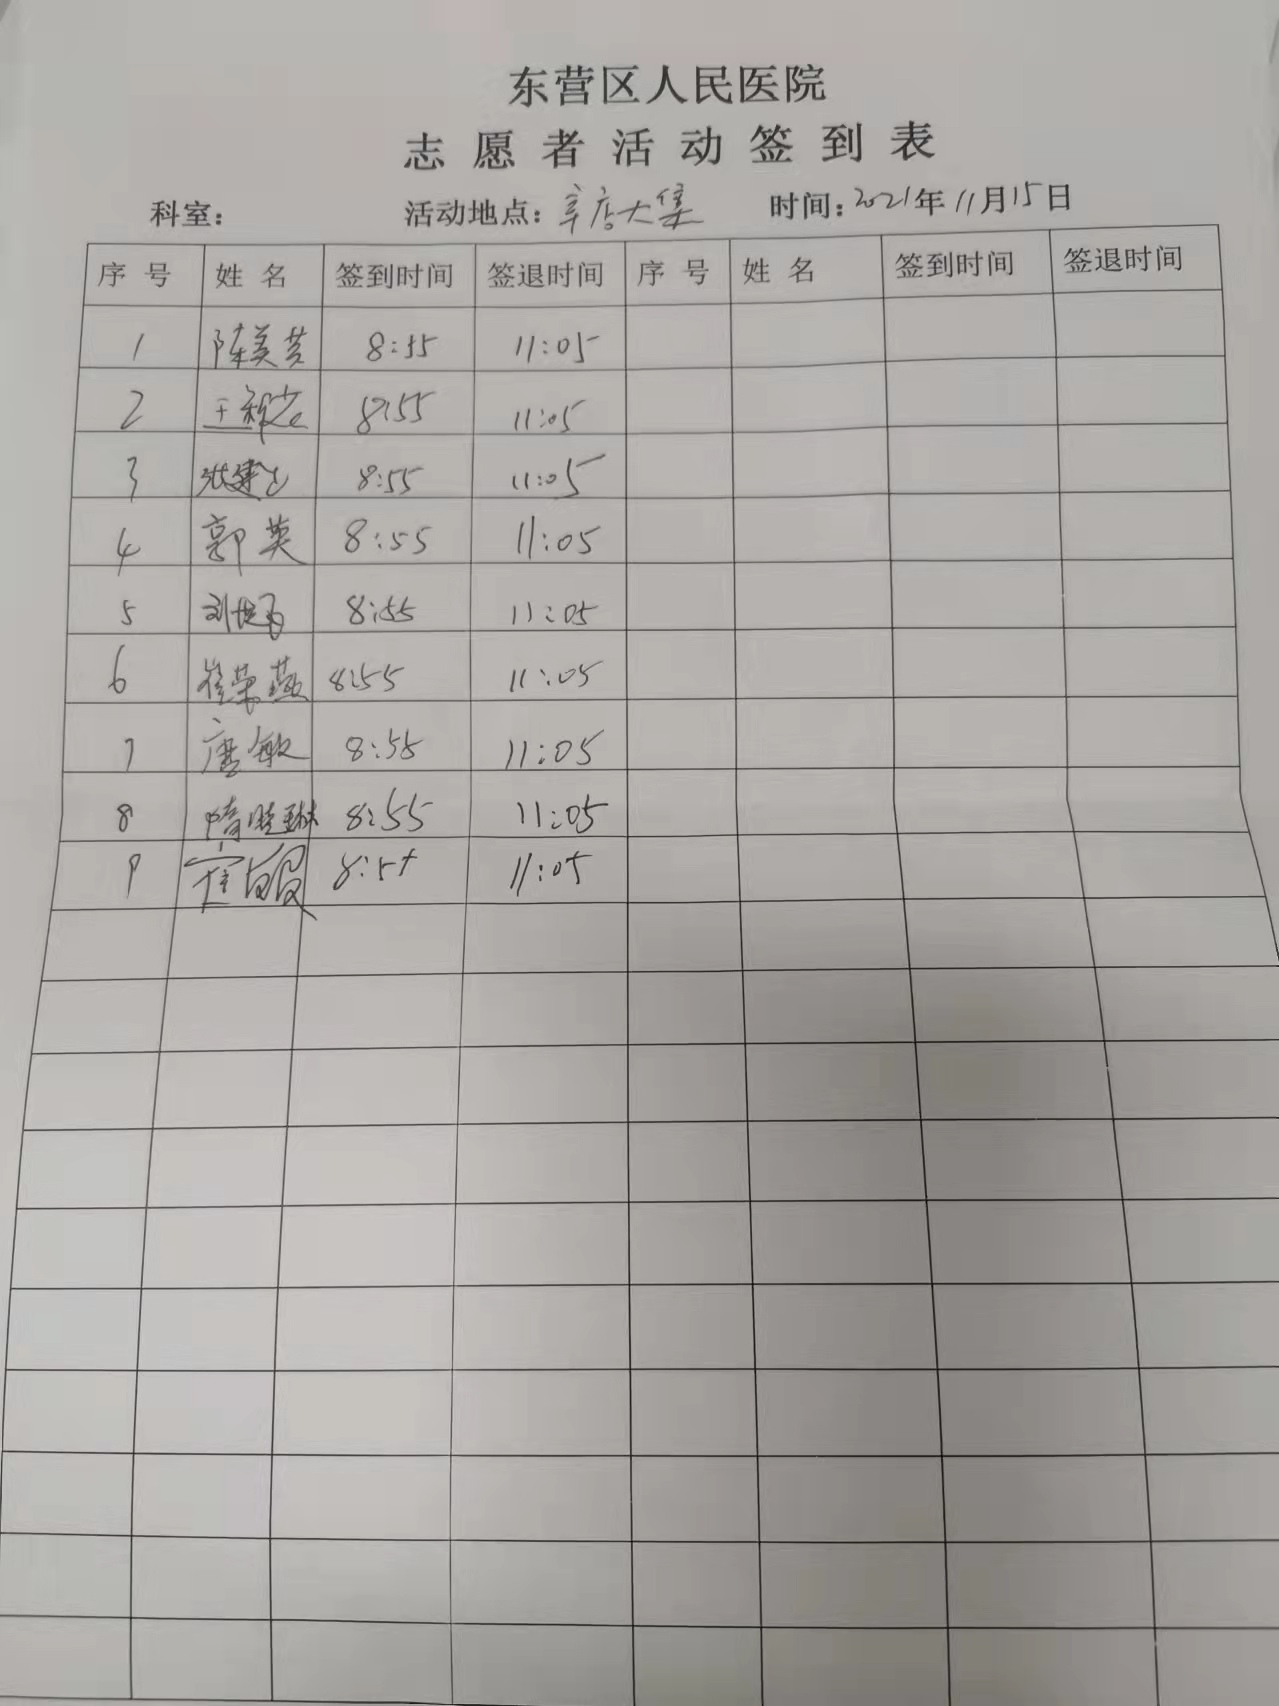 东营区人民医院
志愿者活动签到表
科室： 活动地点：辛店大集 时间：2021年11月15日
序号 姓名 签到时间 签退时间 序号 姓名 签到时间 签退时间
1 陈美芸 8:55 11:05
2 8:55 11:05
3 8:55 11:05
4 郭英 8:55 11:05
5 8:55 11:05
6 崔荣燕 8:55 11:05
7 唐敏 8:55 11:05
8 隋晓琳 8:55 11:05
9 8:55 11:05